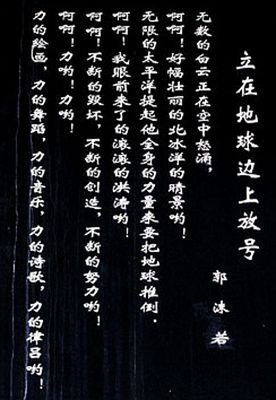 立在地球边上放号
郭沫若
无数的白云正在空中怒涌，
啊啊！好幅壮丽的北冰洋的晴景哟！
无限的太平洋提起他全身的力量来要把地球推倒。
啊啊！我眼前来了的滚滚的洪涛哟！
啊啊！不断的毁坏，不断的创造，不断的努力哟！
啊啊！力哟！力哟！
力的绘画，力的舞蹈，力的音乐，力的诗歌，力的律吕哟！